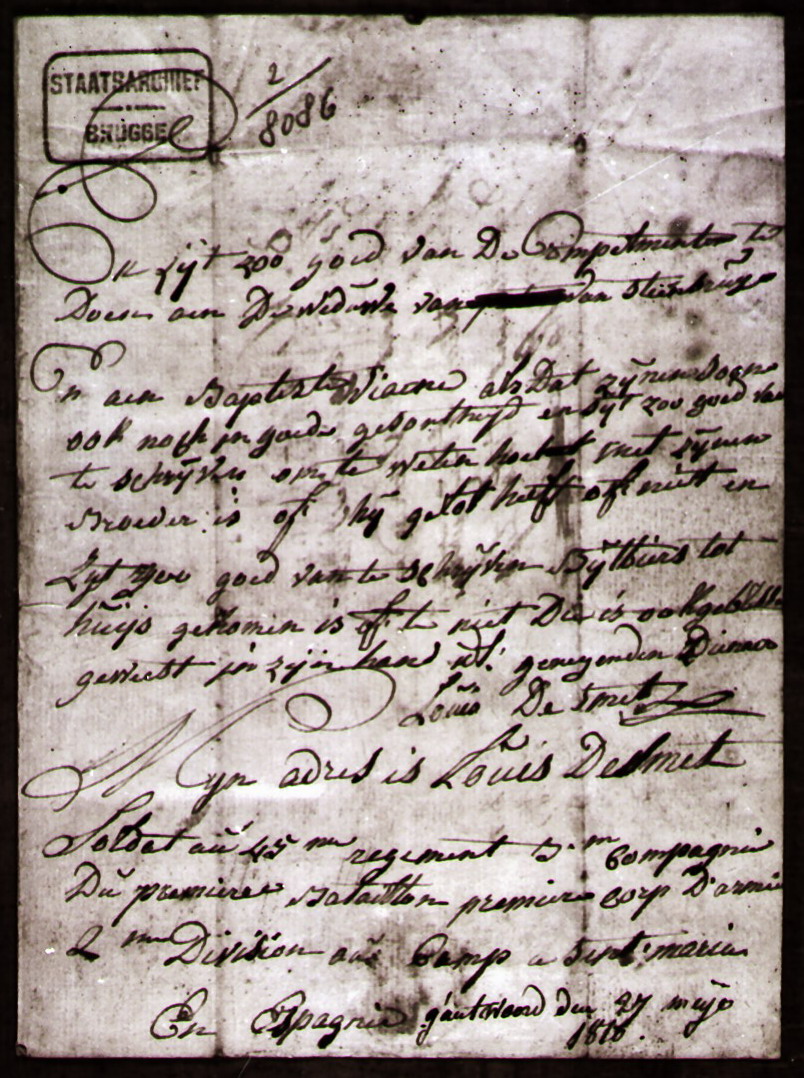 STAATSARCHIEF
BRUGGE
2/8086
En zijt zoo goed van De Complementen te
Doen aen De weduwe van van Steenbrugge
En aen Baptiste Viaene als Dat zijnen
ook noch in goede gesontheijd en zijt zoo goed van
te schrijven om te weten hoe het met zijnen
Broeder is of hij gelot heeft of niet en
Zijt zoo goed van te schrijven tot
huijs gekomen is of te niet Die is ook
geweest in zijn hand genegenden Dienaer
Louis De Smet
Mijn adres is Louis Desmet
Soldat au 45 me regiment 3.m Compagnie
Du premiere Bataillon premiere Corp D'armie
2 me Division au Camp a Sent. maria
En Espagnie g'antwoord den 27 meije
1810.